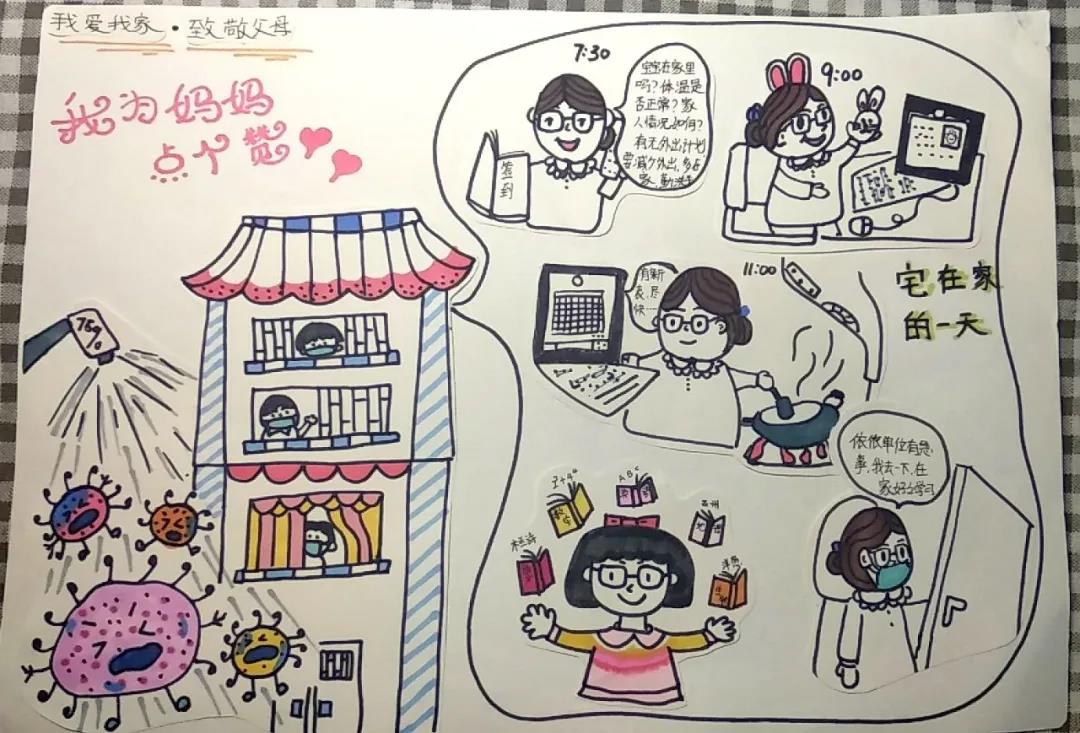 我爱我家·致敬父母
我为妈妈
点个赞
7:30
宝宝在家里
吗?体温是
否正常?家
人情况如何?
有无外出计划
要减少外出,多在
家,勤洗手
签
到
9:00
11:00
有新
表,尽
快……
宅在家
的一天
依依单位有急
事,我去一下,在
家好好学习
75%
数学
ABC
亚州